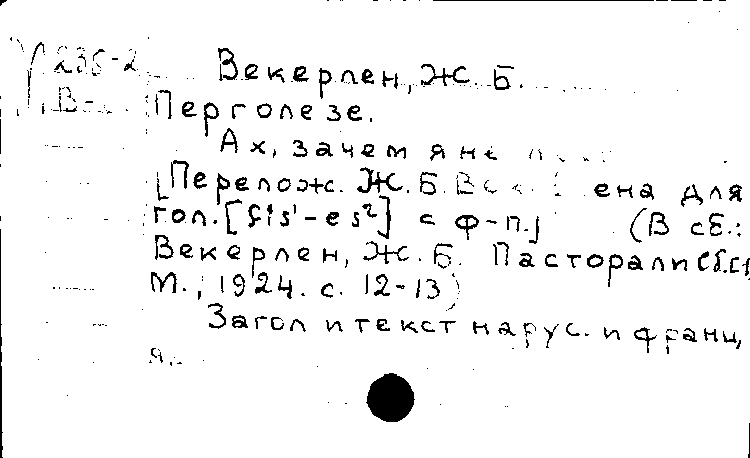 У 235-2 Векерлен, Ж. Б.
В- Перголезе.
Ах, зачем я не
[Перелож. Ж. Б. ена для
гол. [fis'-es²] с ф-п.] (В сб.:
Векерлен, Ж. Б. Пасторали Сб.с1
М., 1924. с. 12-13)
Загол и текст на рус. и франц,
я.